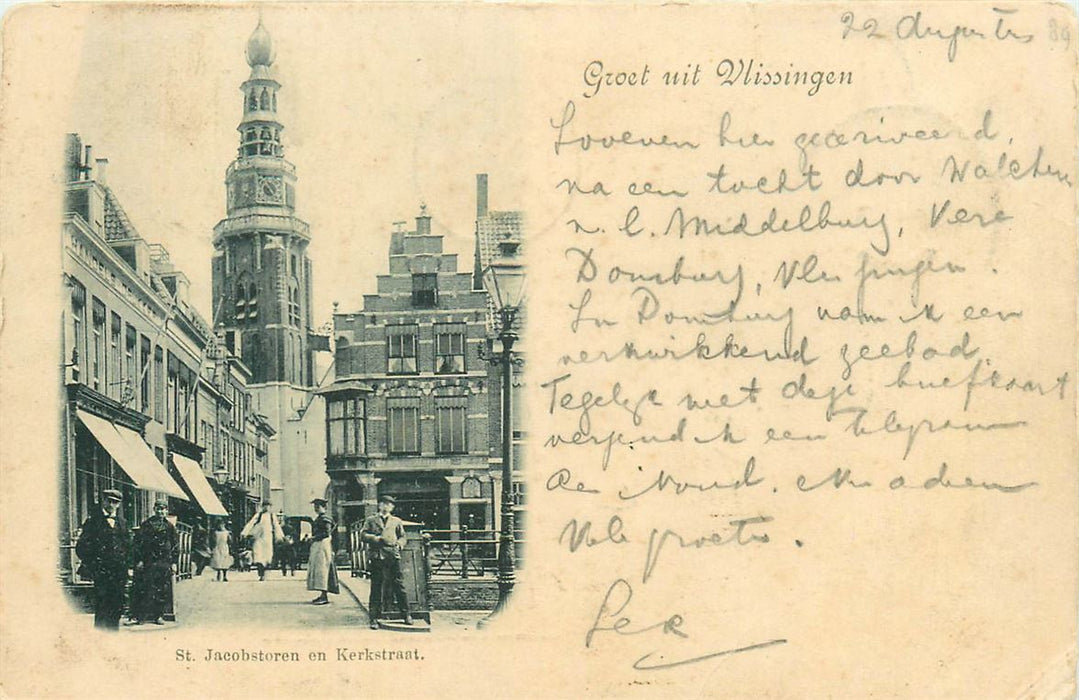 22 Augustus 89
Groet uit Vlissingen
Zoeven hier gearriveerd,
na een tocht door Walcheren
n.l. Middelburg, Vere
Domburg, Vlissingen.
In Domburg nam ik een
verkwikkend zeebad.
Tegelijk met deze briefkaart
verzend ik een telegram
Nu adieu
Vele groeten.
St. Jacobstoren en Kerkstraat.